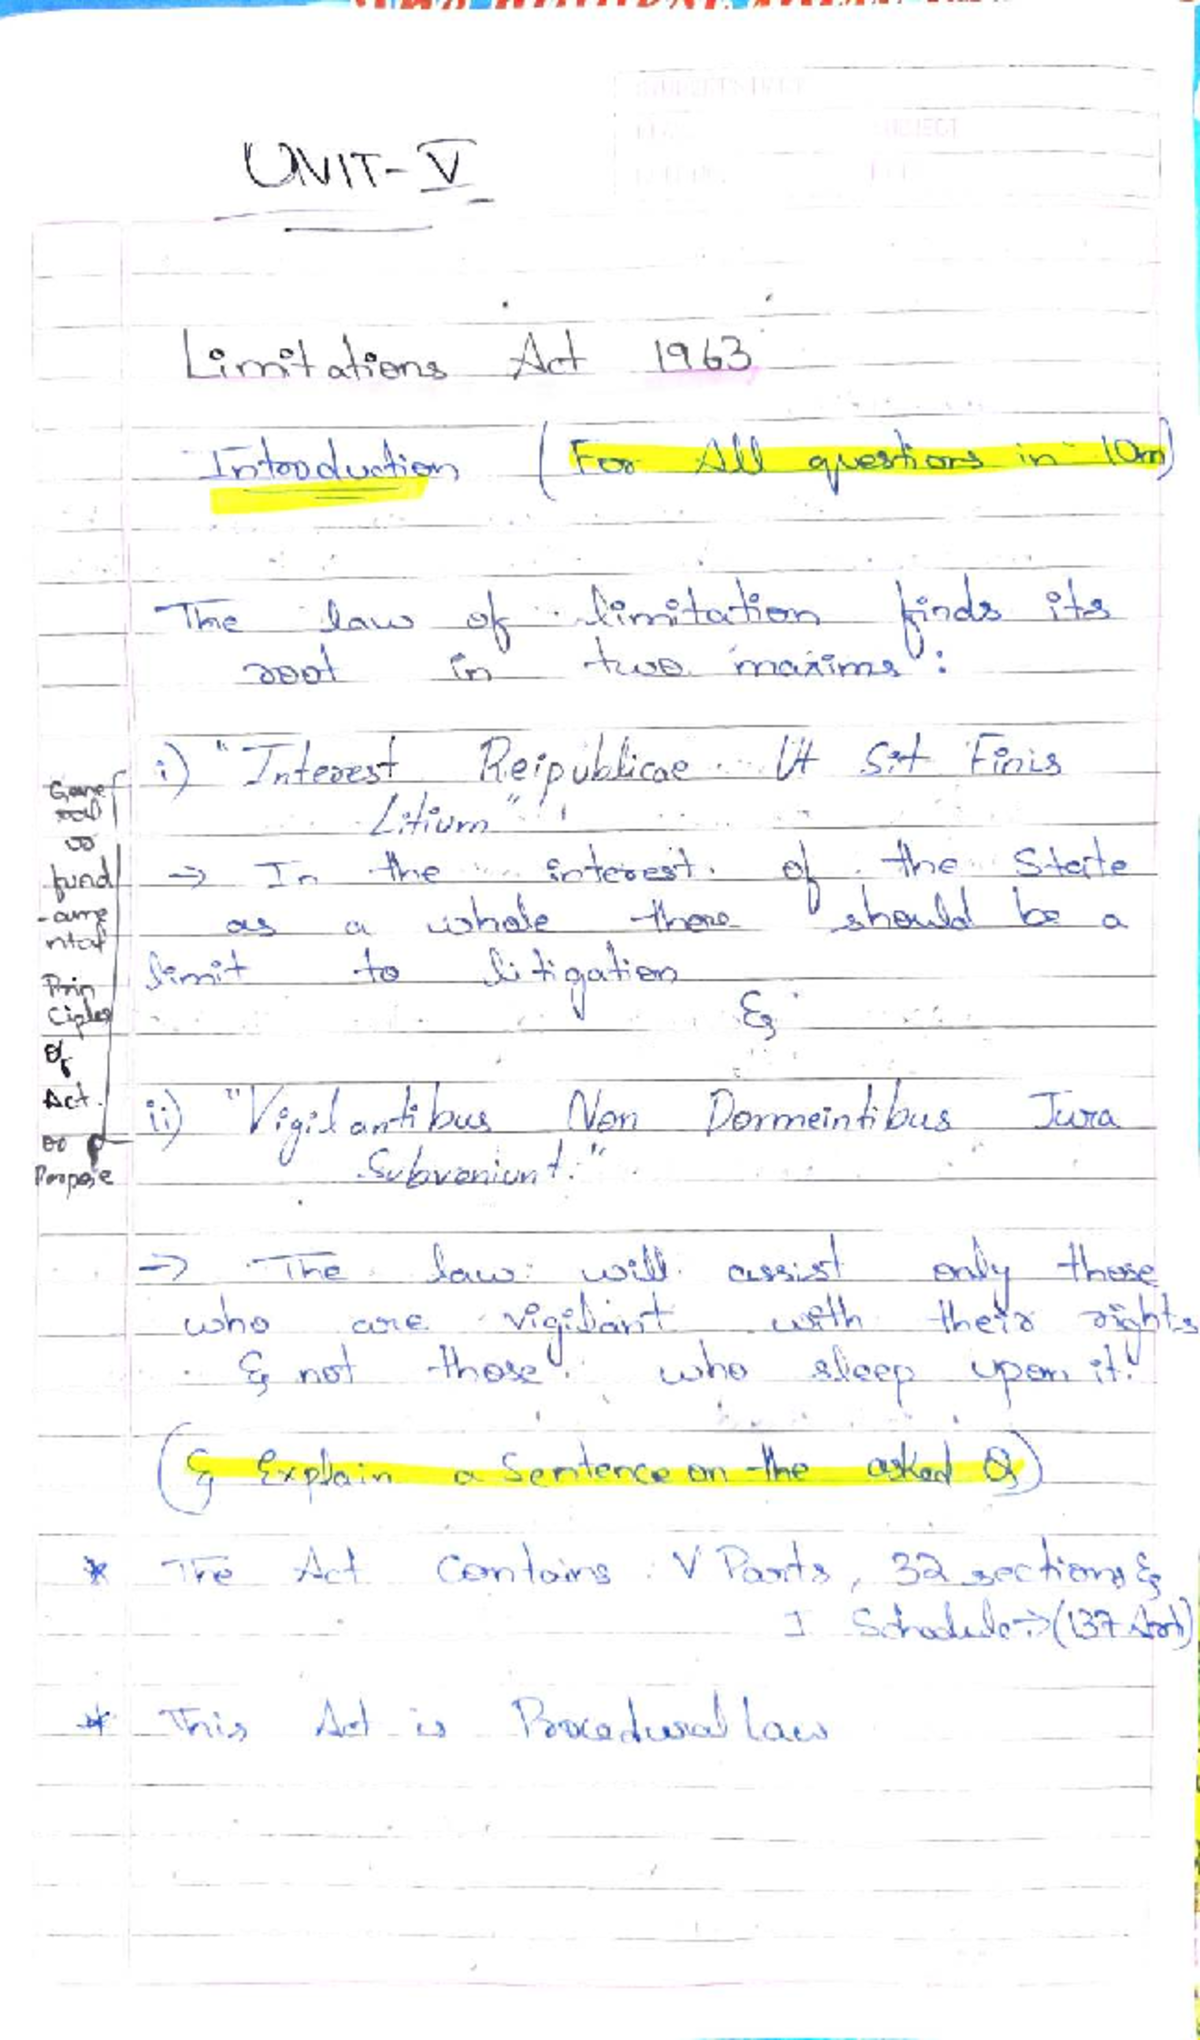 UNIT-V
Limitations Act 1963
Introduction (For All questions in 10m)
The law of limitation finds its
root in two maxims:
i) "Interest Reipublicae Ut Sit Finis
Litium"
→ In the interest of the State
as a whole there should be a
limit to litigation
&
ii) "Vigilantibus Non Dormeintibus Jura
Subveniunt."
→ The law will assist only those
who are vigilant with their rights
& not those who sleep upon it.
(& Explain a Sentence on the asked Q)
* The Act Contains V Parts, 32 sections &
I Schedule→(137 Art)
* This Act is Procedural law
Gene
ral
or
fund
-ame
ntal
Prin
Ciples
of
Act.
or
Porpose